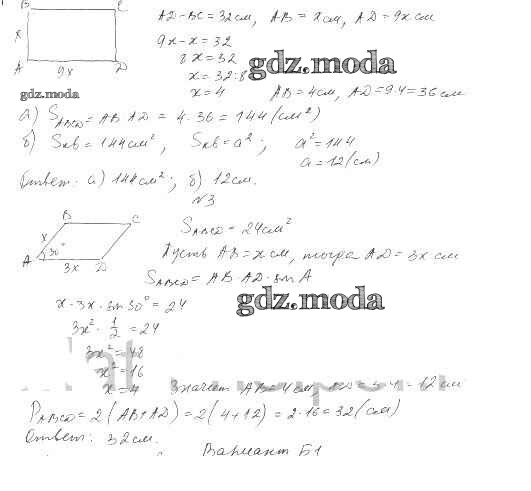 B C
x
A 9x D
AD-BC=32см, AB=xсм, AD=9xсм
9x-x=32
8x=32
x=32:8
x=4 AB=4см, AD=9·4=36см
gdz.moda
gdz.moda
а) S_ABCD=AB AD = 4·36=144(см²)
б) Sкв=144см², Sкв=a²; a²=144
a=12(см)
Ответ: а) 144см²; б) 12см.
№3
B C
x
A 30° 3x D
S_ABCD=24см²
Пусть AB=xсм, тогда AD=3x см
S_ABCD=AB AD·sinA
x·3x·sin30°=24
gdz.moda
3x²·1/2=24
3x²=48
x²=16
x=4 Значит AB=4см, 12см
P_ABCD=2(AB+AD)=2(4+12)=2·16=32(см)
Ответ: 32см.
Вариант Б1